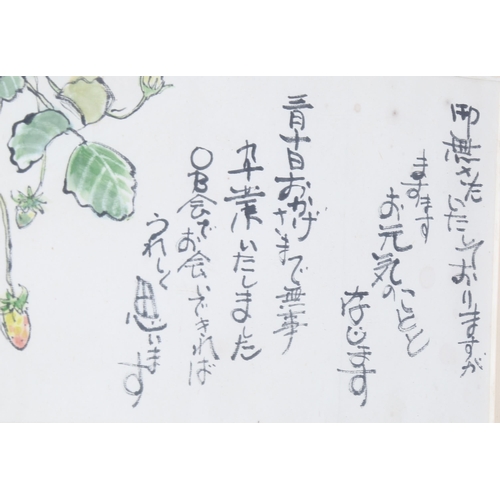 御無さた
いたしておりますが
ますます
お元気のことと
なじます
三月十日おかげ
さまで無事
卒業いたしました
OB会でお会いできれば
うれしく
思います